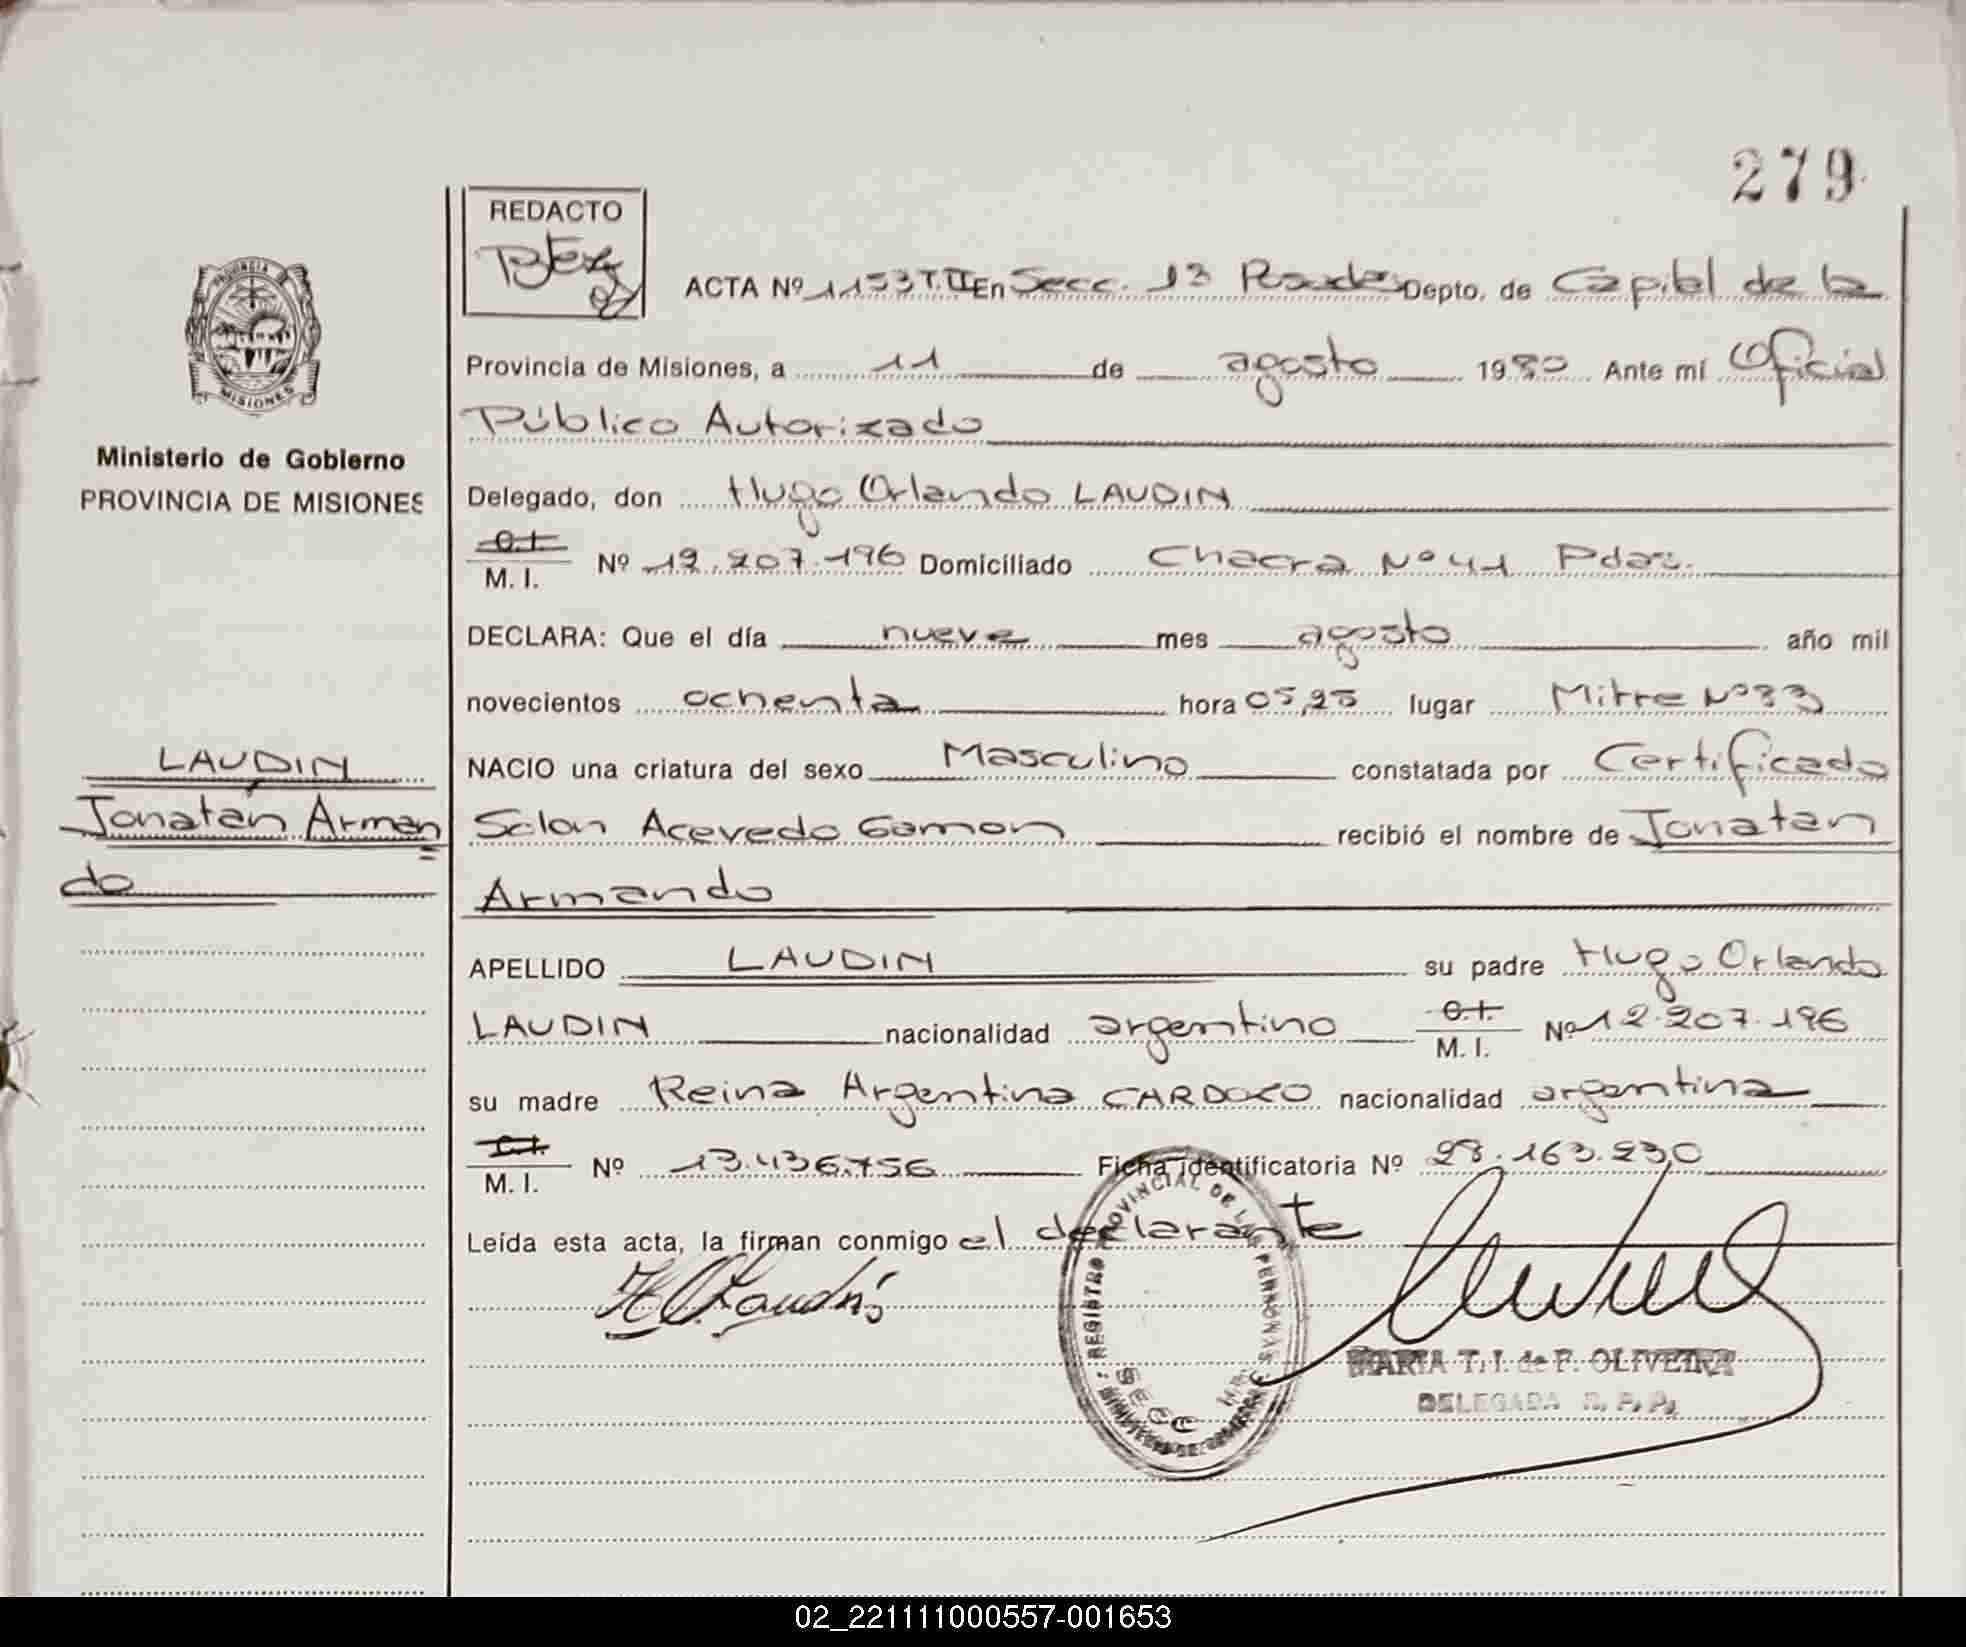 279
REDACTO
ACTA Nº 1153 T.II En Secc. 13 Posadas Depto. de Capital de la
Provincia de Misiones, a 11 de agosto 1980 Ante mí Oficial
Público Autorizado
Delegado, don Hugo Orlando LAUDIN
C.I.
M. I. Nº 12.207.196 Domiciliado Chacra Nº 41 Pdas.
DECLARA: Que el día nueve mes agosto año mil
novecientos ochenta hora 05,25 lugar Mitre Nº 33
NACIO una criatura del sexo Masculino constatada por Certificado
Solon Acevedo Gamon recibió el nombre de Jonatan
Armando
APELLIDO LAUDIN su padre Hugo Orlando
LAUDIN nacionalidad argentino C.I.
M. I. Nº 12.207.196
su madre Reina Argentina CARDOZO nacionalidad argentina
C.I.
M. I. Nº 13.436.756 Ficha identificatoria Nº 28.163.230
Leída esta acta, la firman conmigo el declarante
H.O. Laudin
REGISTRO PROVINCIAL DE LAS PERSONAS
SECC
MARIA T. I. de F. OLIVEIRA
DELEGADA R. P. P.
PROVINCIA DE
MISIONES
Ministerio de Gobierno
PROVINCIA DE MISIONES
LAUDIN
Jonatán Arman
do
02_221111000557-001653